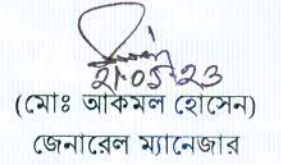 21.05.23
(মোঃ আকমল হোসেন)
জেনারেল ম্যানেজার